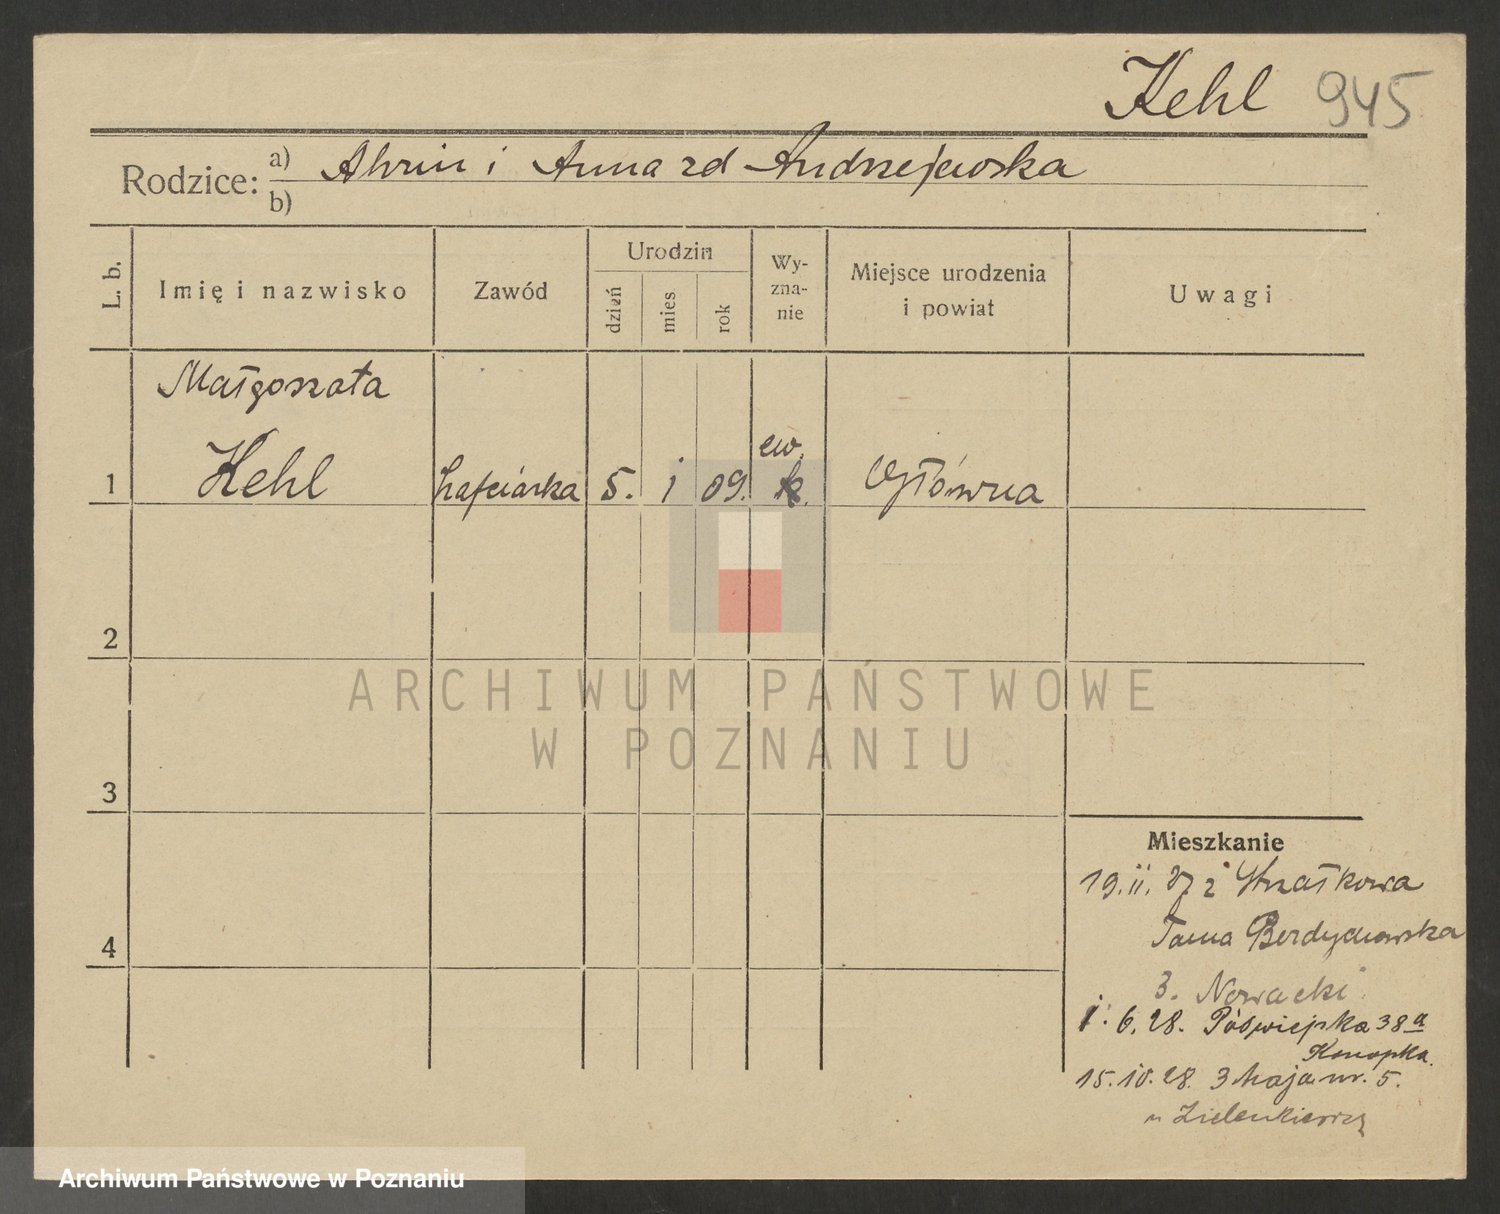 Kehl 945
Rodzice: a) Alwin i Anna zd Andrzejewska
b)
L. b.
Imię i nazwisko
Zawód
Urodzin
dzień
mies
rok
Wy-
zna-
nie
Miejsce urodzenia
i powiat
Uwagi
Małgorzata
ew.
1 Kehl hafciarka 5. i 09. k. Główna
2
3
4
Mieszkanie
19.ii.27 z Strzałkowa
Tama Berdychowska
3. Nowacki
i. 6.28. Półwiejska 38a
Konopka.
15.10.28. 3 Maja nr. 5.
u Zielenkiewicz
ARCHIWUM PAŃSTWOWE
W POZNANIU
Archiwum Państwowe w Poznaniu